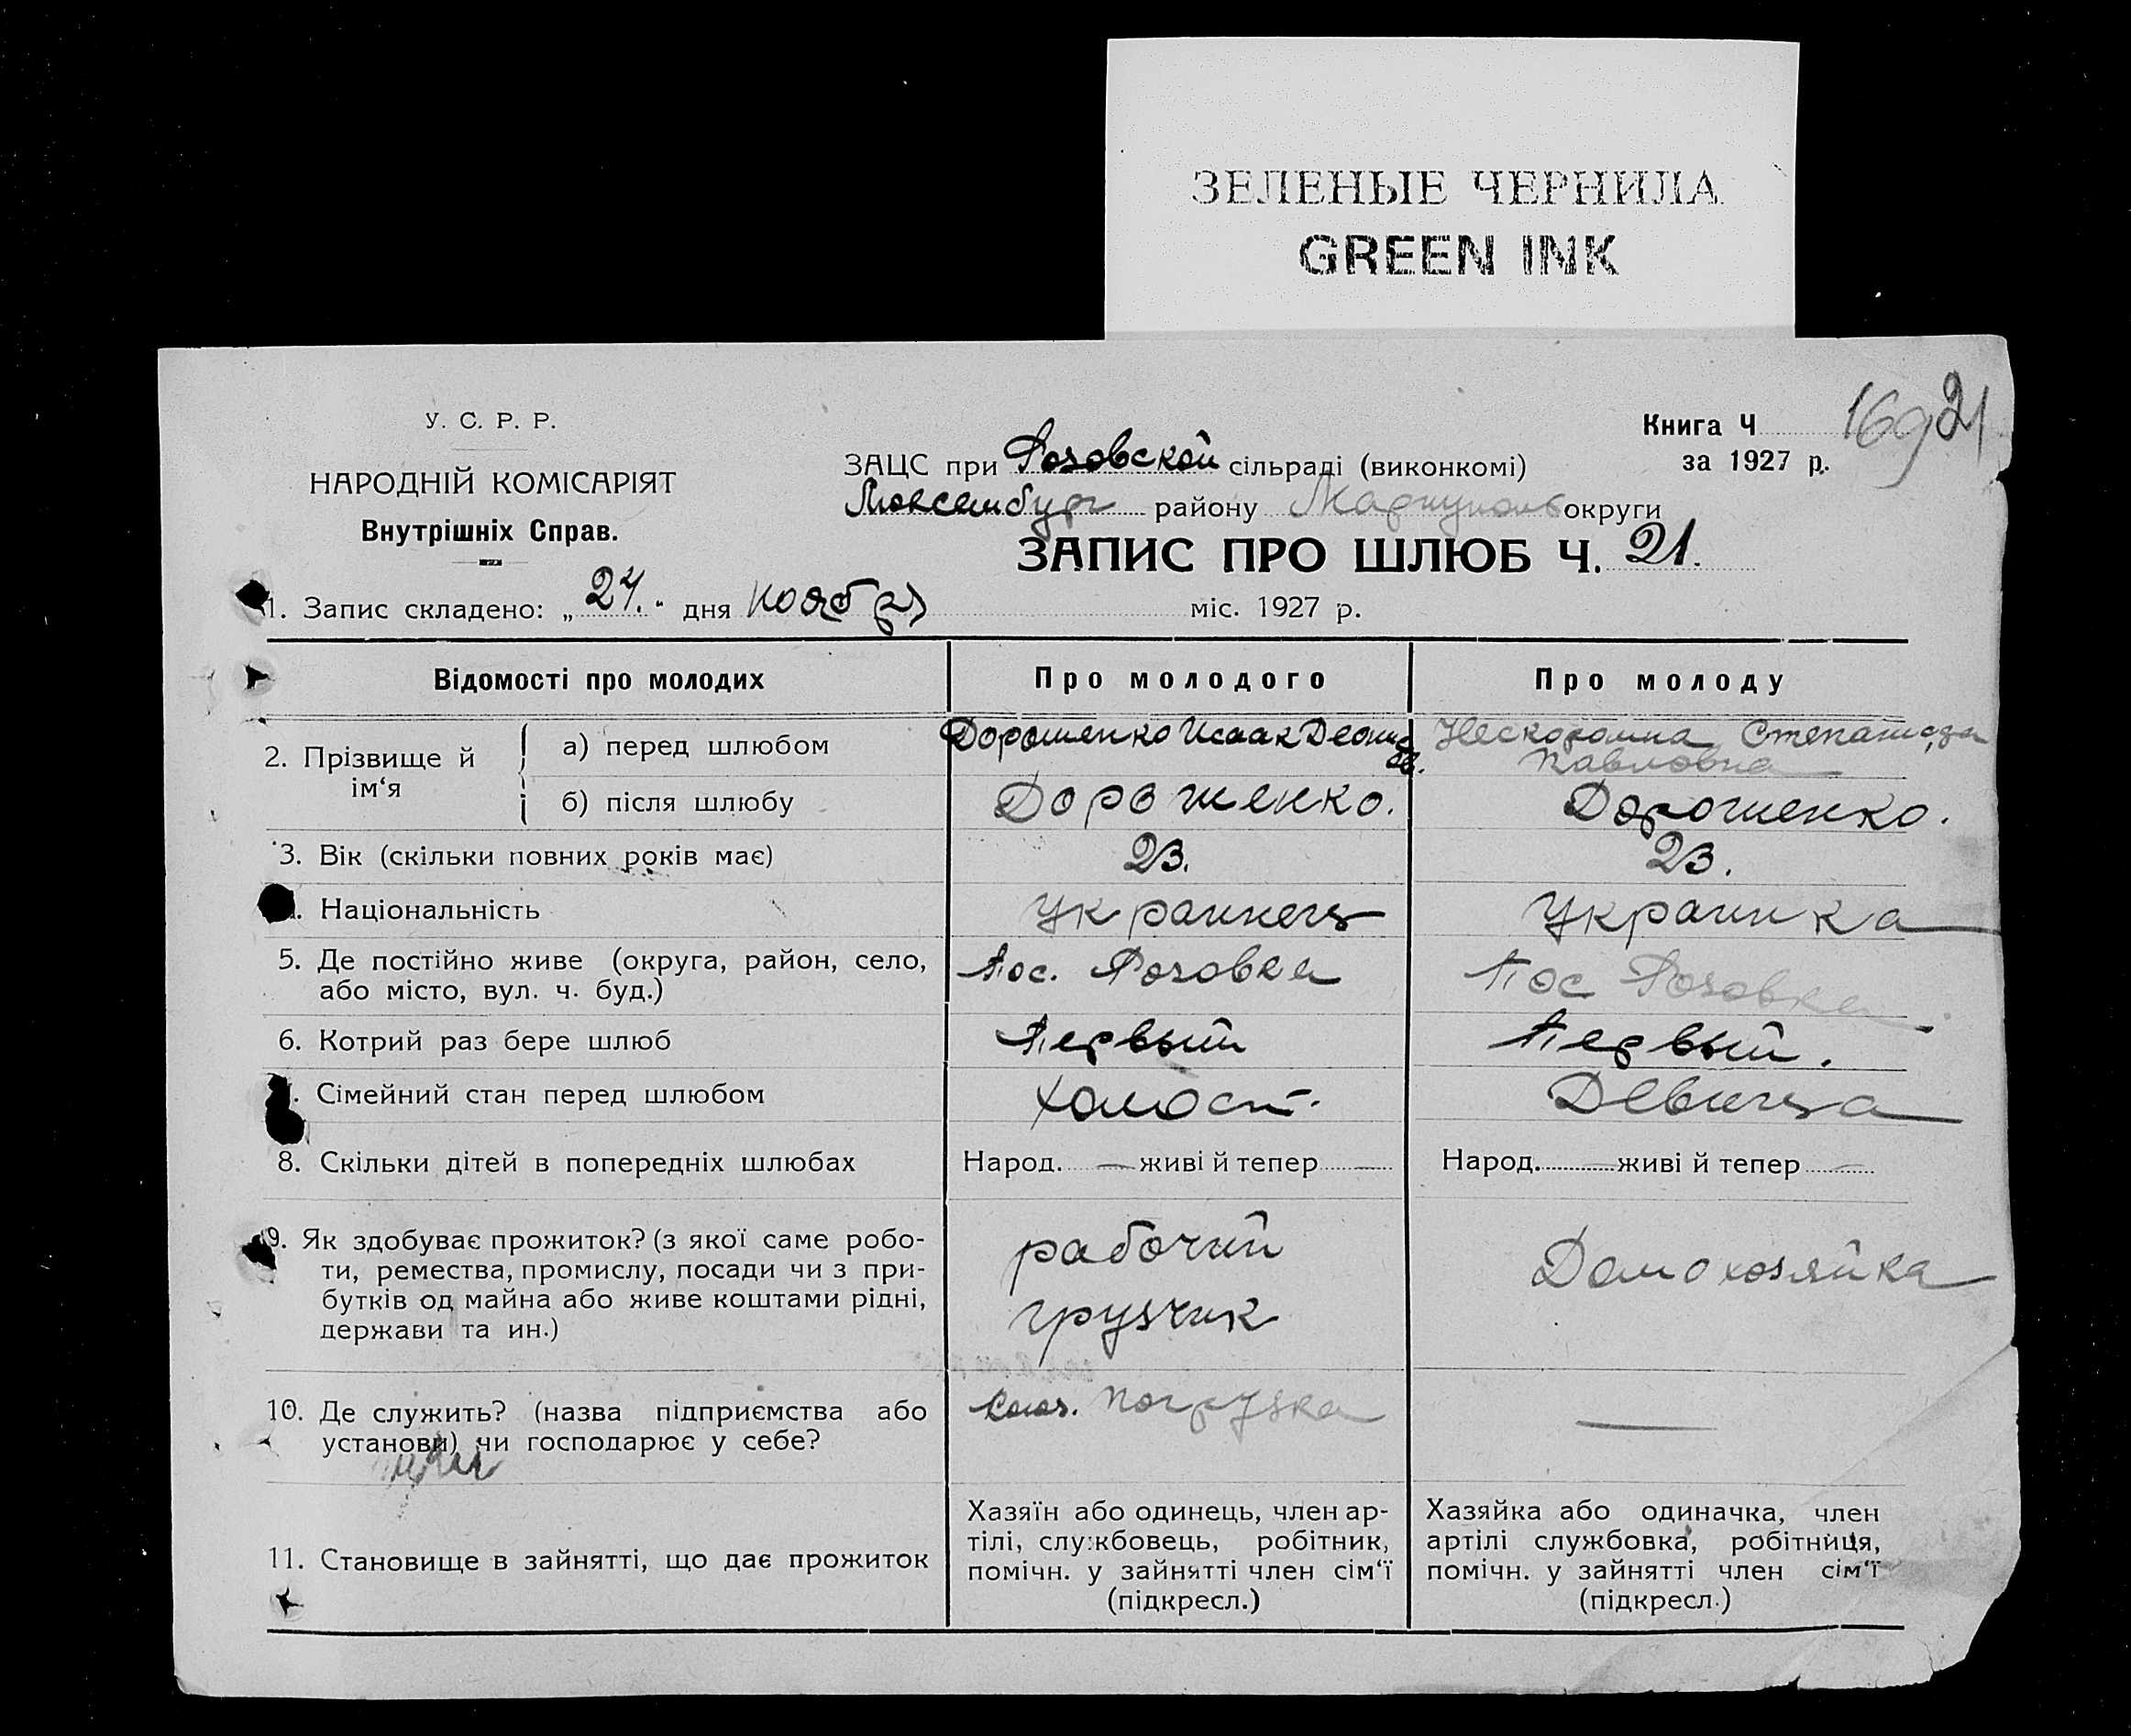 ЗЕЛЕНЫЕ ЧЕРНИЛА
GREEN INK
У. С. Р. Р.
НАРОДНІЙ КОМІСАРІЯТ
Внутрішніх Справ.
Книга Ч. 169 21
за 1927 р.
ЗАЦС при Розовской сільраді (виконкомі)
району Мариуполь округи
ЗАПИС ПРО ШЛЮБ Ч. 21.
1. Запис складено: „ 24. " дня ноября міс. 1927 р.
Відомості про молодих
Про молодого
Про молоду
2. Прізвище й ім‘я
а) перед шлюбом
Дорошенко Исаак
Нескоромна Степанида
Павловна
б) після шлюбу
Дорошенко.
Дорошенко.
3. Вік (скільки повних років має)
23.
23.
Національність
Украинец
Украинка
5. Де постійно живе (округа, район, село,
або місто, вул. ч. буд.)
Пос. Розовка
Пос Розовка
6. Котрий раз бере шлюб
Первый
Первый.
Сімейний стан перед шлюбом
Холост.
Девица
8. Скільки дітей в попередніх шлюбах
Народ. — живі й тепер —
Народ. — живі й тепер —
9. Як здобуває прожиток? (з якої саме робо-
ти, ремества, промислу, посади чи з при-
бутків од майна або живе коштами рідні,
держави та ин.)
рабочий
грузчик
Домохозяйка
10. Де служить? (назва підприємства або
установи) чи господарює у себе?
погрузка
—
11. Становище в зайнятті, що дає прожиток
Хазяїн або одинець, член ар-
тілі, службовець, робітник,
помічн. у зайнятті член сім‘ї
(підкресл.)
Хазяйка або одиначка, член
артілі службовка, робітниця,
помічн. у зайнятті член сім‘ї
(підкресл.)